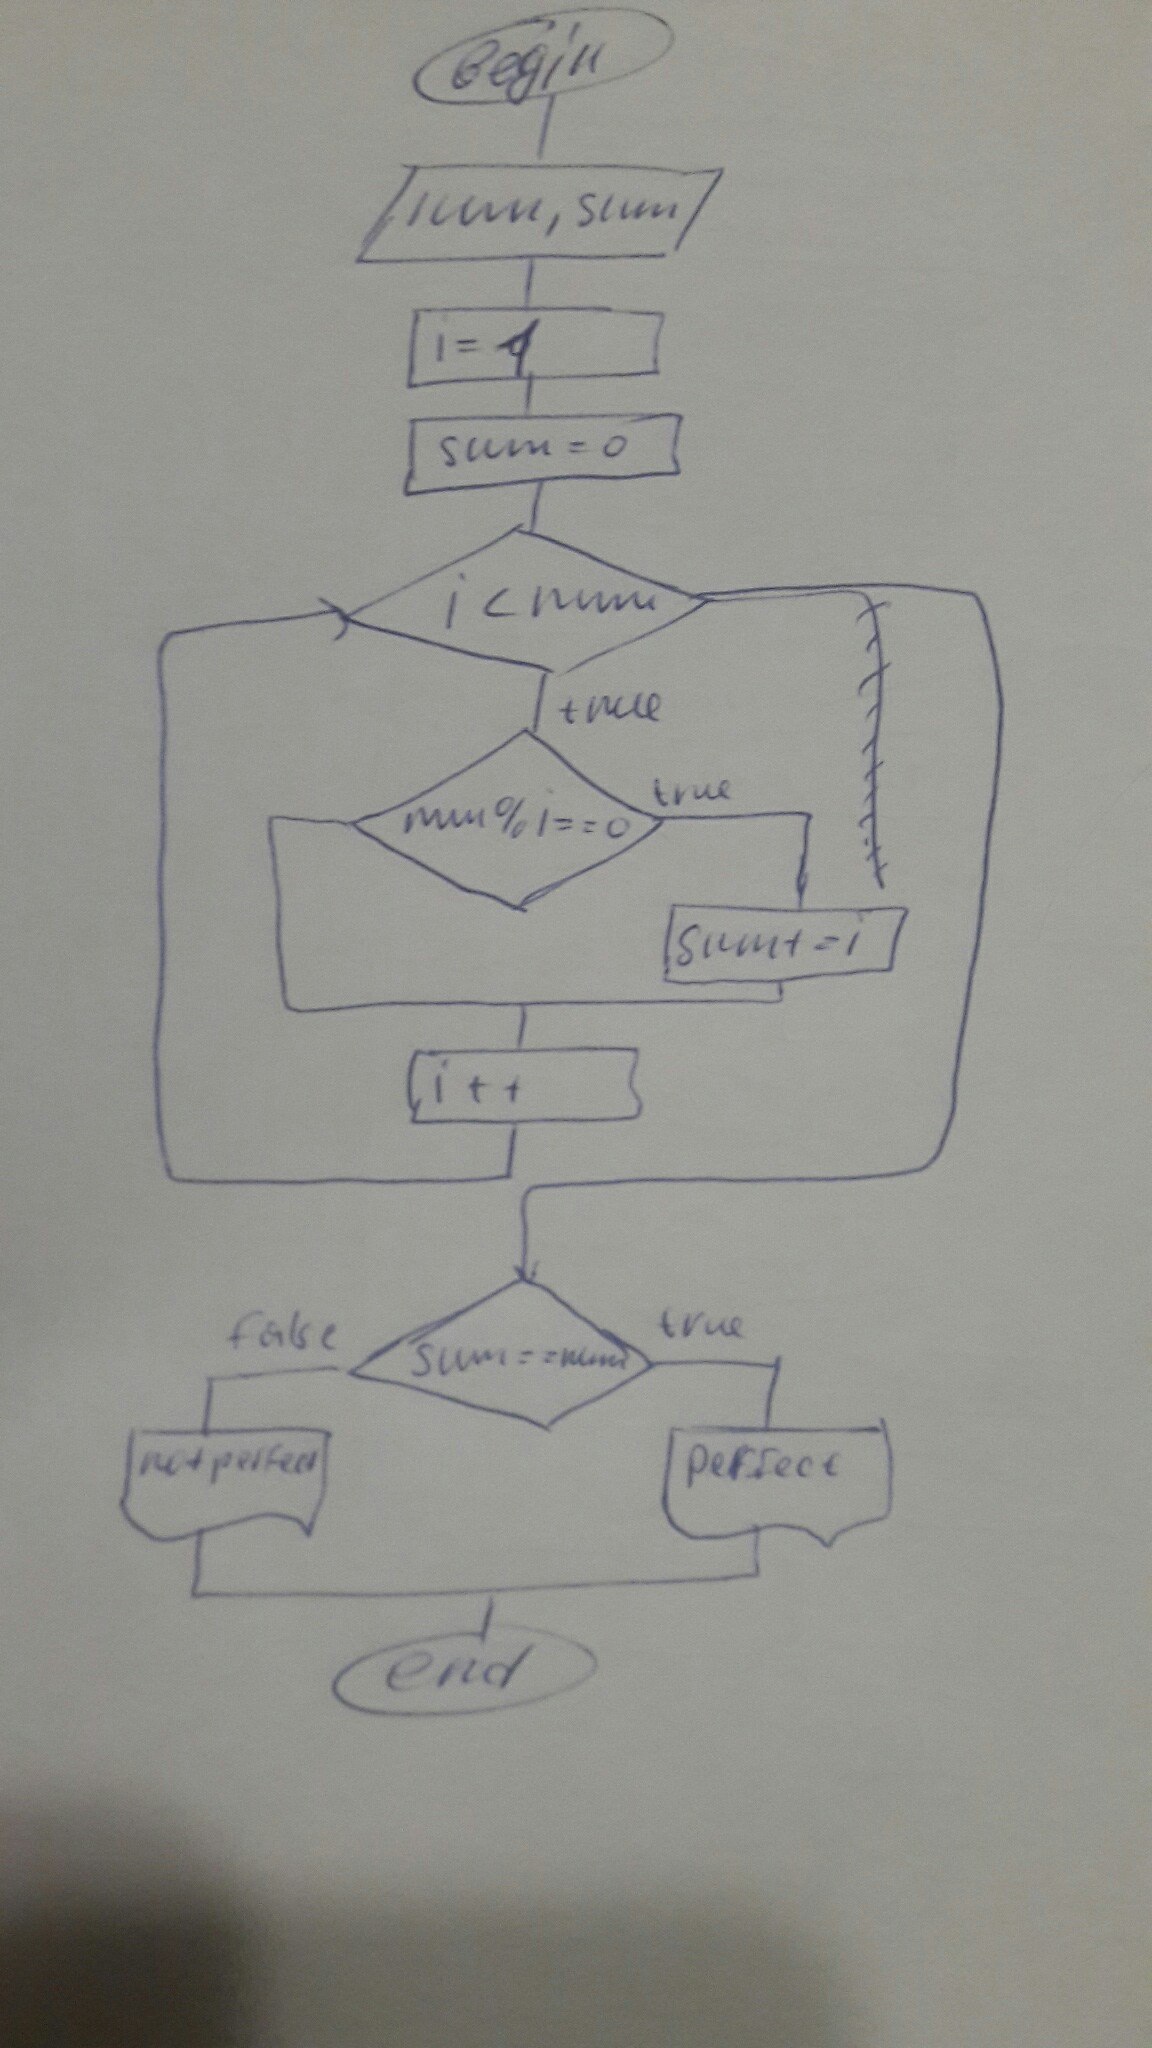 Begin
num, sum
i = 1
sum = 0
i < num
true
num % i == 0
true
sum += i
i + +
sum == num
false
true
not perfect
perfect
end